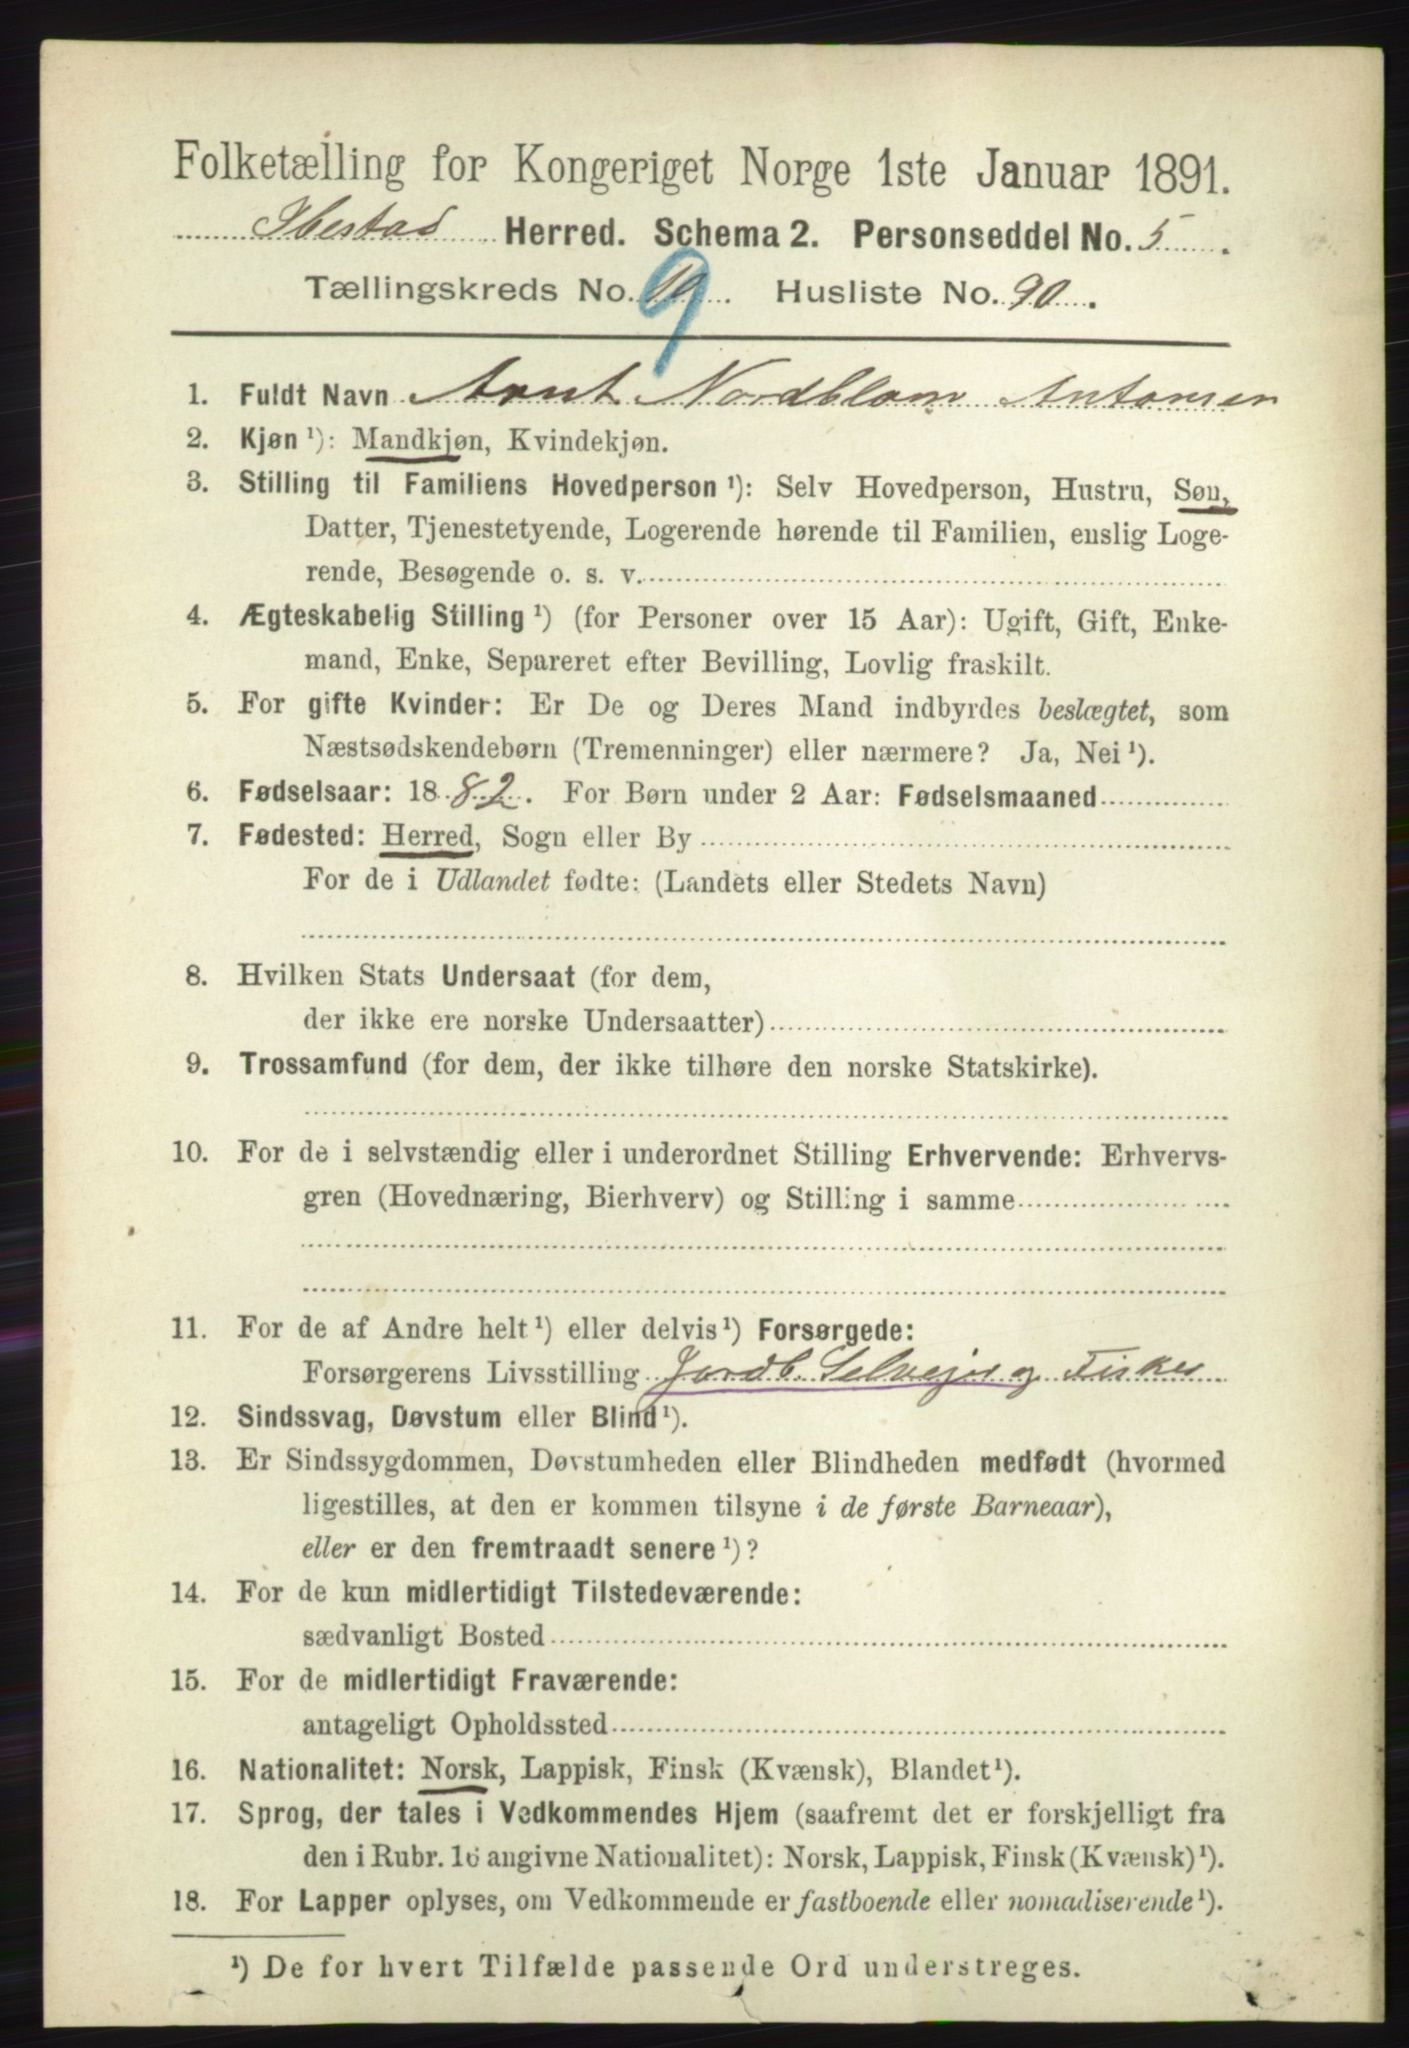 Folketælling for Kongeriget Norge 1ste Januar 1891.
Ibestad Herred. Schema 2. Personseddel No. 5.
Tællingskreds No. 9. Husliste No. 90.
1. Fuldt Navn Arnt Nordblom Antonsen
2. Kjøn ¹): Mandkjøn, Kvindekjøn.
3. Stilling til Familiens Hovedperson ¹): Selv Hovedperson, Hustru, Søn,
Datter, Tjenestetyende, Logerende hørende til Familien, enslig Loge-
rende, Besøgende o. s. v.
4. Ægteskabelig Stilling ¹) (for Personer over 15 Aar): Ugift, Gift, Enke-
mand, Enke, Separeret efter Bevilling, Lovlig fraskilt.
5. For gifte Kvinder: Er De og Deres Mand indbyrdes beslægtet, som
Næstsødskendebørn (Tremenninger) eller nærmere? Ja, Nei ¹).
6. Fødselsaar: 1882. For Børn under 2 Aar: Fødselsmaaned
7. Fødested: Herred, Sogn eller By
For de i Udlandet fødte: (Landets eller Stedets Navn)
8. Hvilken Stats Undersaat (for dem,
der ikke ere norske Undersaatter)
9. Trossamfund (for dem, der ikke tilhøre den norske Statskirke).
10. For de i selvstændig eller i underordnet Stilling Erhvervende: Erhvervs-
gren (Hovednæring, Bierhverv) og Stilling i samme
11. For de af Andre helt ¹) eller delvis ¹) Forsørgede:
Forsørgerens Livsstilling Jordb. Selvejer og Fisker
12. Sindssvag, Døvstum eller Blind ¹).
13. Er Sindssygdommen, Døvstumheden eller Blindheden medfødt (hvormed
ligestilles, at den er kommen tilsyne i de første Barneaar),
eller er den fremtraadt senere ¹)?
14. For de kun midlertidigt Tilstedeværende:
sædvanligt Bosted
15. For de midlertidigt Fraværende:
antageligt Opholdssted
16. Nationalitet: Norsk, Lappisk, Finsk (Kvænsk), Blandet ¹).
17. Sprog, der tales i Vedkommendes Hjem (saafremt det er forskjelligt fra
den i Rubr. 16 angivne Nationalitet): Norsk, Lappisk, Finsk (Kvænsk) ¹).
18. For Lapper oplyses, om Vedkommende er fastboende eller nomadiserende ¹).
¹) De for hvert Tilfælde passende Ord understreges.